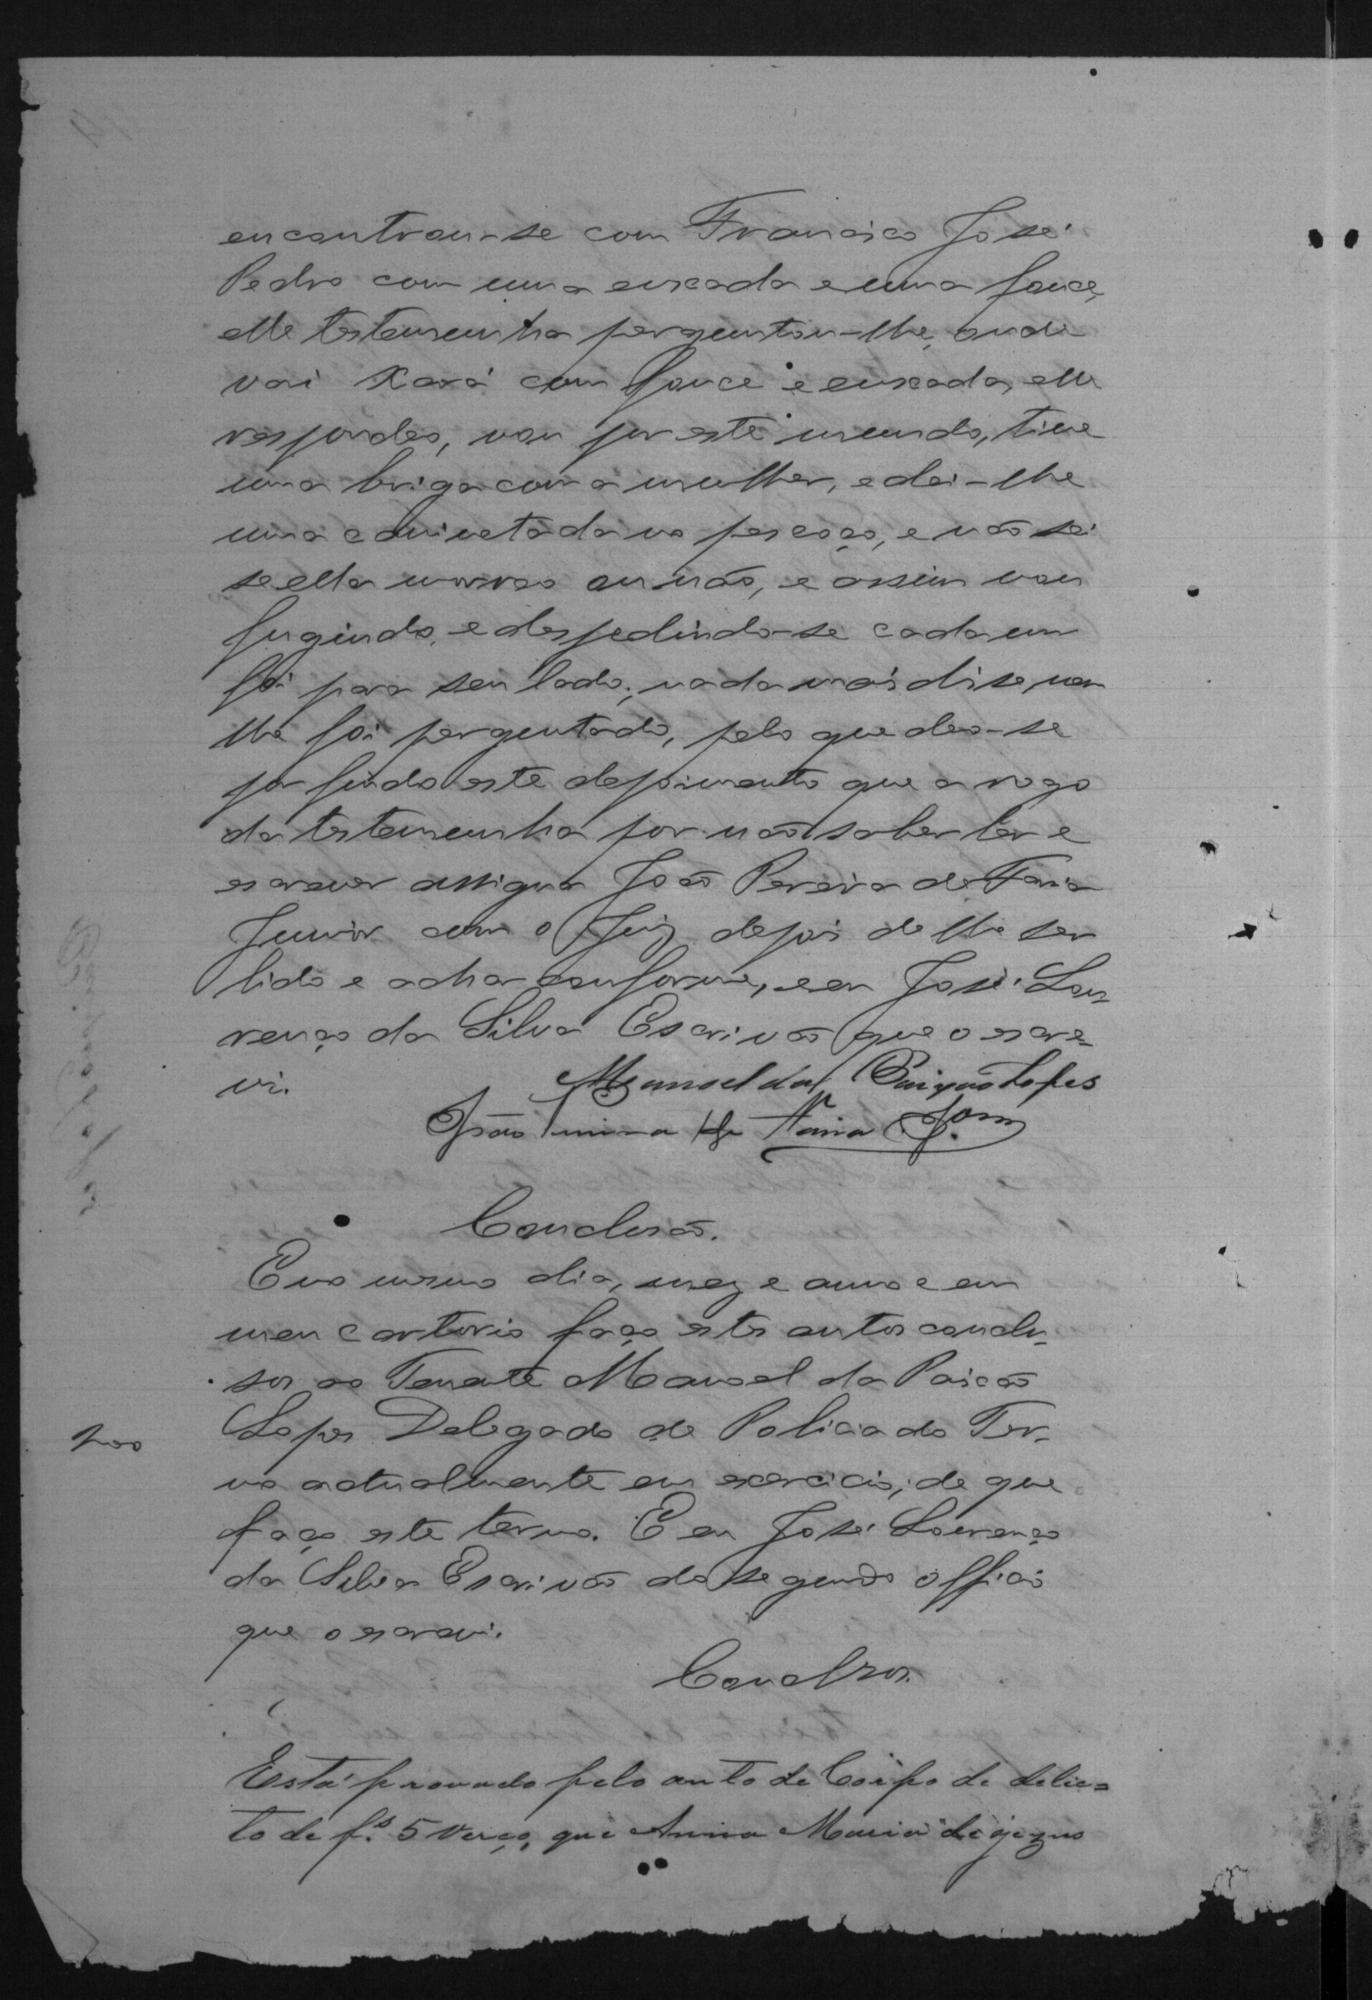 encontrou-se com Francisco José
Pedro com uma enxada e uma fouce,
elle testemunha perguntou-lhe, onde
vai Xará com fouce e enxada, elle
respondeo, vou por este mundo, tive
uma briga com a mulher, e dei-lhe
uma canivetada no pescoço, e não sei
se ella morreo ou não, e assim vou
fugindo, e despedindo-se cada um
foi para seu lado; nada mais disse, nem
lhe foi perguntado, pelo que deo-se
por findo este depoimento que a rogo
da testemunha por não saber ler e
escrever assigna João Pereira de Faria
Junior com o Juiz depois de lhe ser
lido e achar conforme, e eu José Lou-
renço da Silva Escrivão que o escre-
vi.
Manoel da Paixão Lopes
João Pereira de Faria Jor
Conclusão.
E no mesmo dia, mez e anno e em
meu cartorio faço estes autos conclu-
sos ao Tenente Manoel da Paixão
Lopes Delegado de Policia do Ter-
mo actualmente em exercicio; de que
faço este termo. E eu José Lourenço
da Silva Escrivão do segundo officio
que o escrevi.
Conclsos.
Está provado pelo auto de Corpo de delic=
to de fs. 5 verço, que Anna Maria de gezus